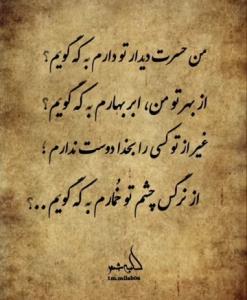 من حسرت دیدار تو دارم به که گویم؟
از بهر تو من، ابر بهارم به که گویم؟
غیر از تو کسی را بخدا دوست ندارم ؛
از نرگس چشم تو خُمارم به که گویم..؟